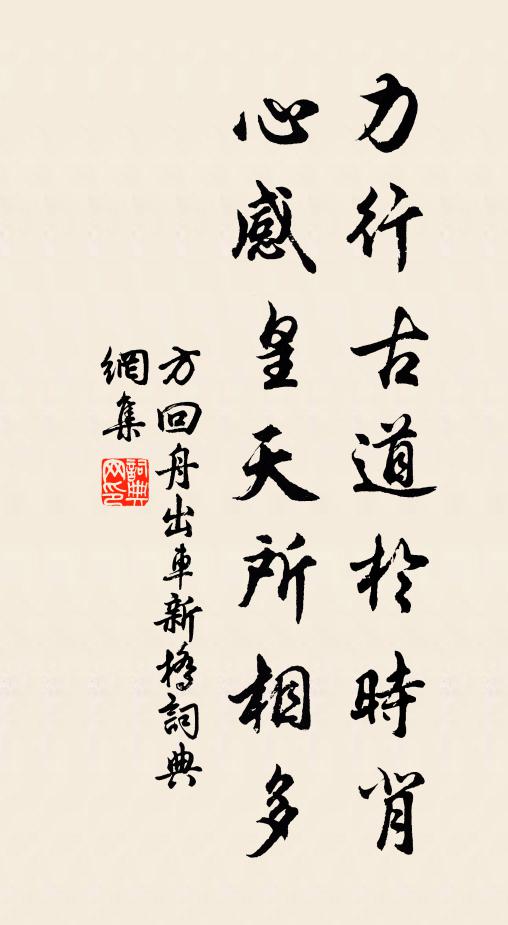 力行古道於時背
心感皇天所相多
方回舟出車新橋詞典
網集
詞典網印